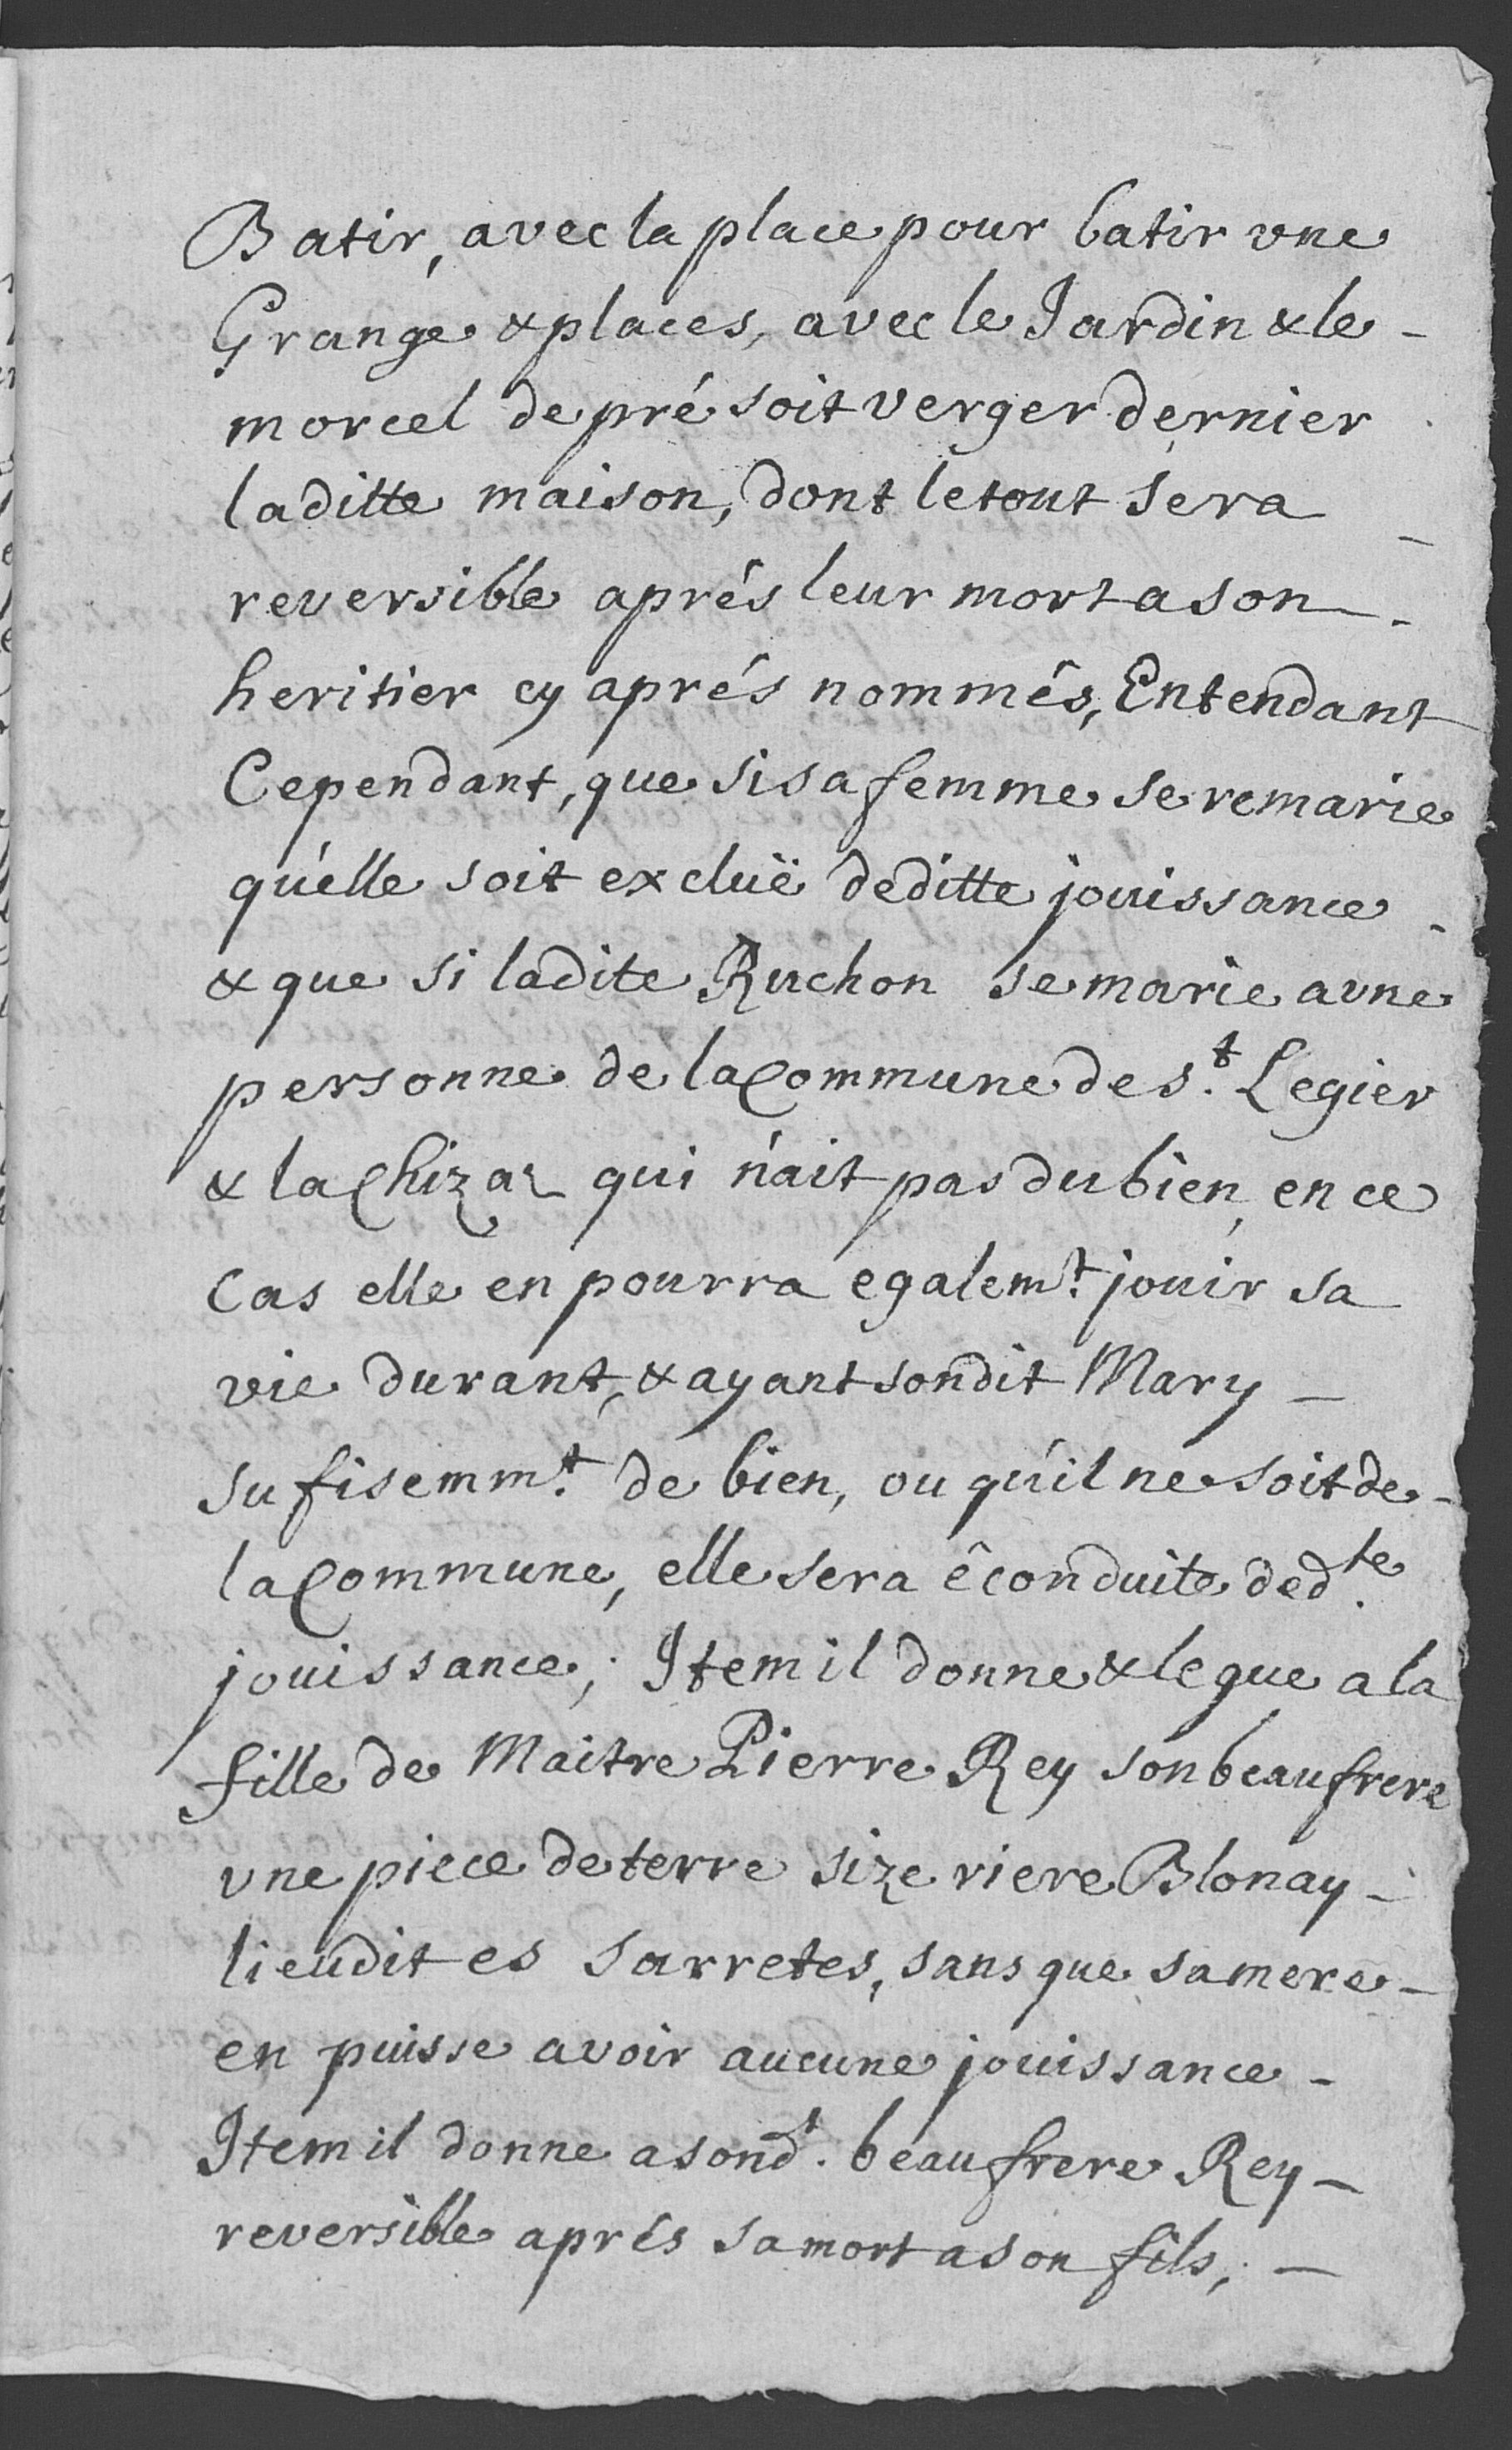 Batir, avec la place pour batir vne
Grange & places, avec le Jardin & le -
morcel de pré soit verger dernier
laditte maison, dont le tout sera -
reversible aprés leur mort a son -
heritier cy aprés nommés, Entendant
Cependant, que si sa femme se remarie
qu'elle soit excluë deditte jouissance -
& que si ladite Ruchon se marie a vne
personne de la Commune de s.t Legier
& la Chiza qui n'ait pas du bien, en ce
Cas elle en pourra egalem.t jouir sa
vie durant, & ayant sondit Mary -
sufisemm.t de bien, ou qu'il ne soit de -
la Commune, elle sera êconduite ded.te
jouissance; Item il donne & legue a la
fille de Maitre Pierre Rey son beaufrere
vne piece de terre size riere Blonay -
lieudit es Sarretes, sans que sa mere -
en puisse avoir aucune jouissance -
Item il donne a sond.t beaufrere Rey -
reversible aprés sa mort a son fils; -